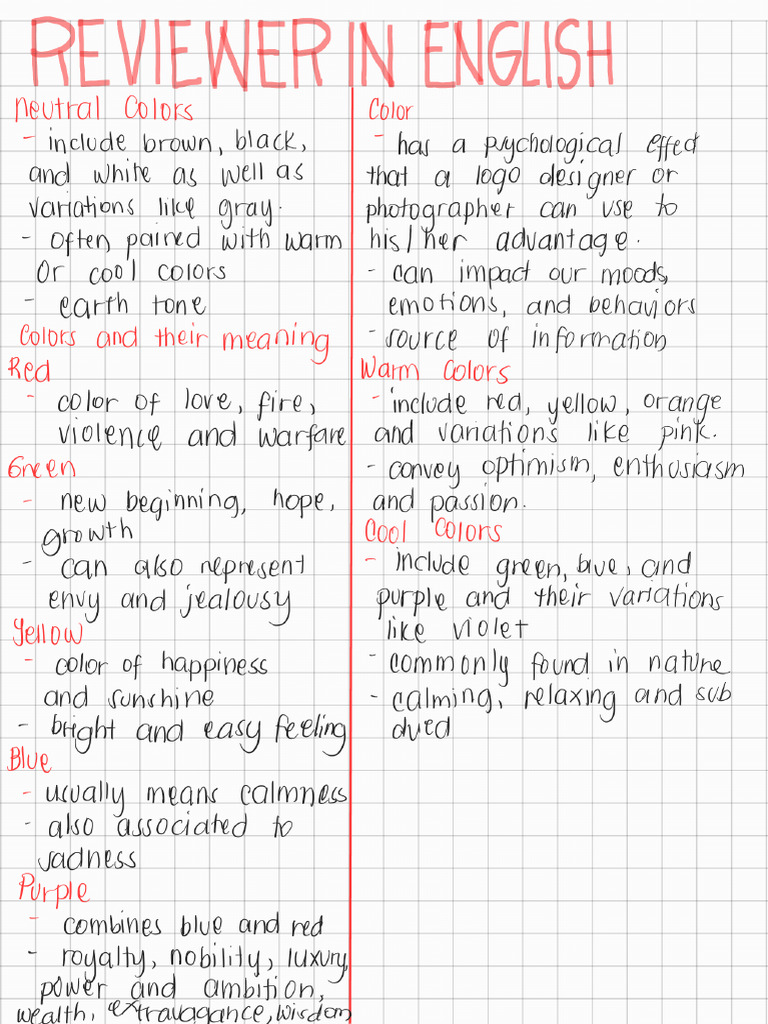 REVIEWER IN ENGLISH
Neutral Colors
- include brown, black,
and white as well as
variations like gray.
- often paired with warm
or cool colors
- earth tone
Colors and their meaning
Red
- color of love, fire,
violence and warfare
Green
- new beginning, hope,
growth
- can also represent
envy and jealousy
Yellow
- color of happiness
and sunshine
- bright and easy feeling
Blue
- usually means calmness
- also associated to
sadness
Purple
- combines blue and red
- royalty, nobility, luxury,
power and ambition,
wealth, extravagance, wisdom
Color
- has a psychological effect
that a logo designer or
photographer can use to
his/her advantage.
- can impact our moods,
emotions, and behaviors
- source of information
Warm Colors
- include red, yellow, orange
and variations like pink.
- convey optimism, enthusiasm
and passion.
Cool Colors
- include green, blue, and
purple and their variations
like violet
- commonly found in nature
- calming, relaxing and sub
dued